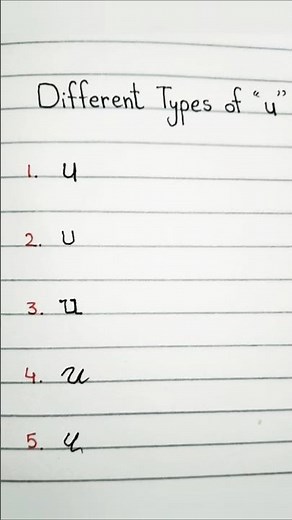 Different Types of “u”
1. u
2. u
3. u
4. u
5. u